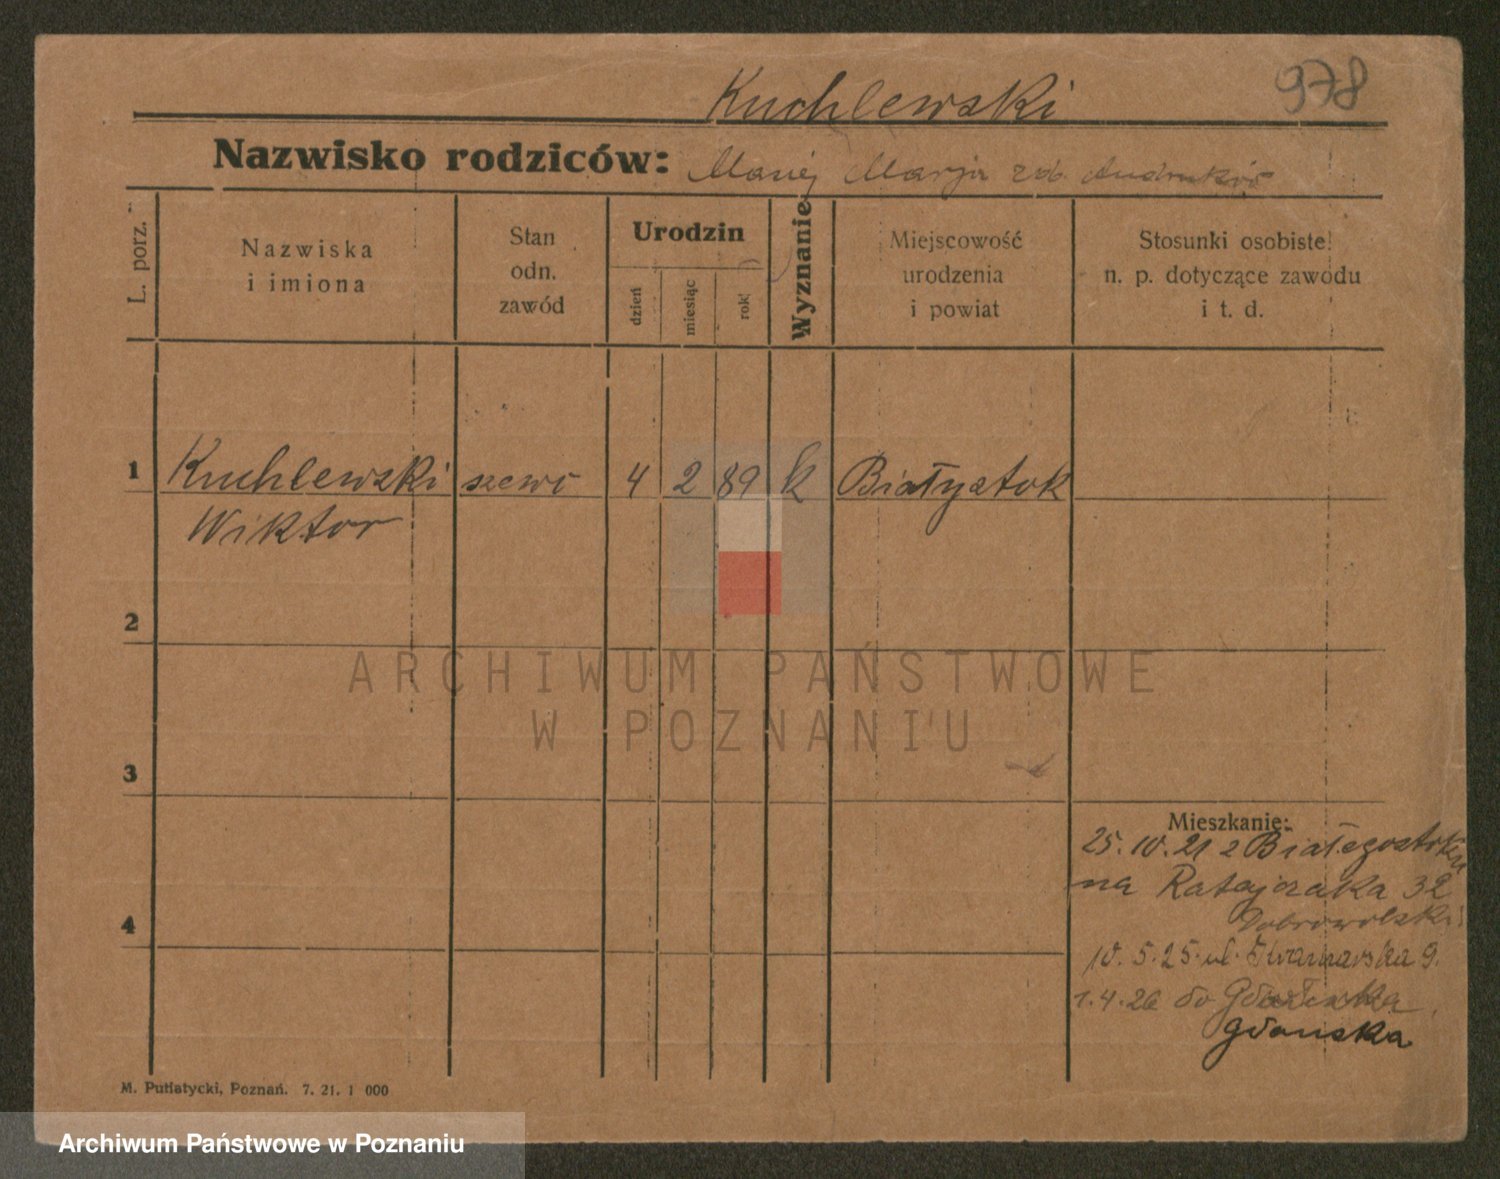 978
Kuchlewski
Nazwisko rodziców: Maciej Marja zd.
L. porz.
Nazwiska
i imiona
Stan
odn.
zawód
Urodzin
dzień
miesiąc
rok
Wyznanie
Miejscowość
urodzenia
i powiat
Stosunki osobiste
n. p. dotyczące zawodu
i t. d.
1 Kuchlewski szewc 4 2 89 k Białystok
Wiktor
2
3
4
Mieszkanie:
25.10.21 z Białegostoku
na Ratajczaka 32
Dobrowolski
10.5.25 ul. 9.
1.4.26 do
Gdańska
M. Putiatycki, Poznań. 7. 21. 1 000
ARCHIWUM PAŃSTWOWE
W POZNANIU
Archiwum Państwowe w Poznaniu